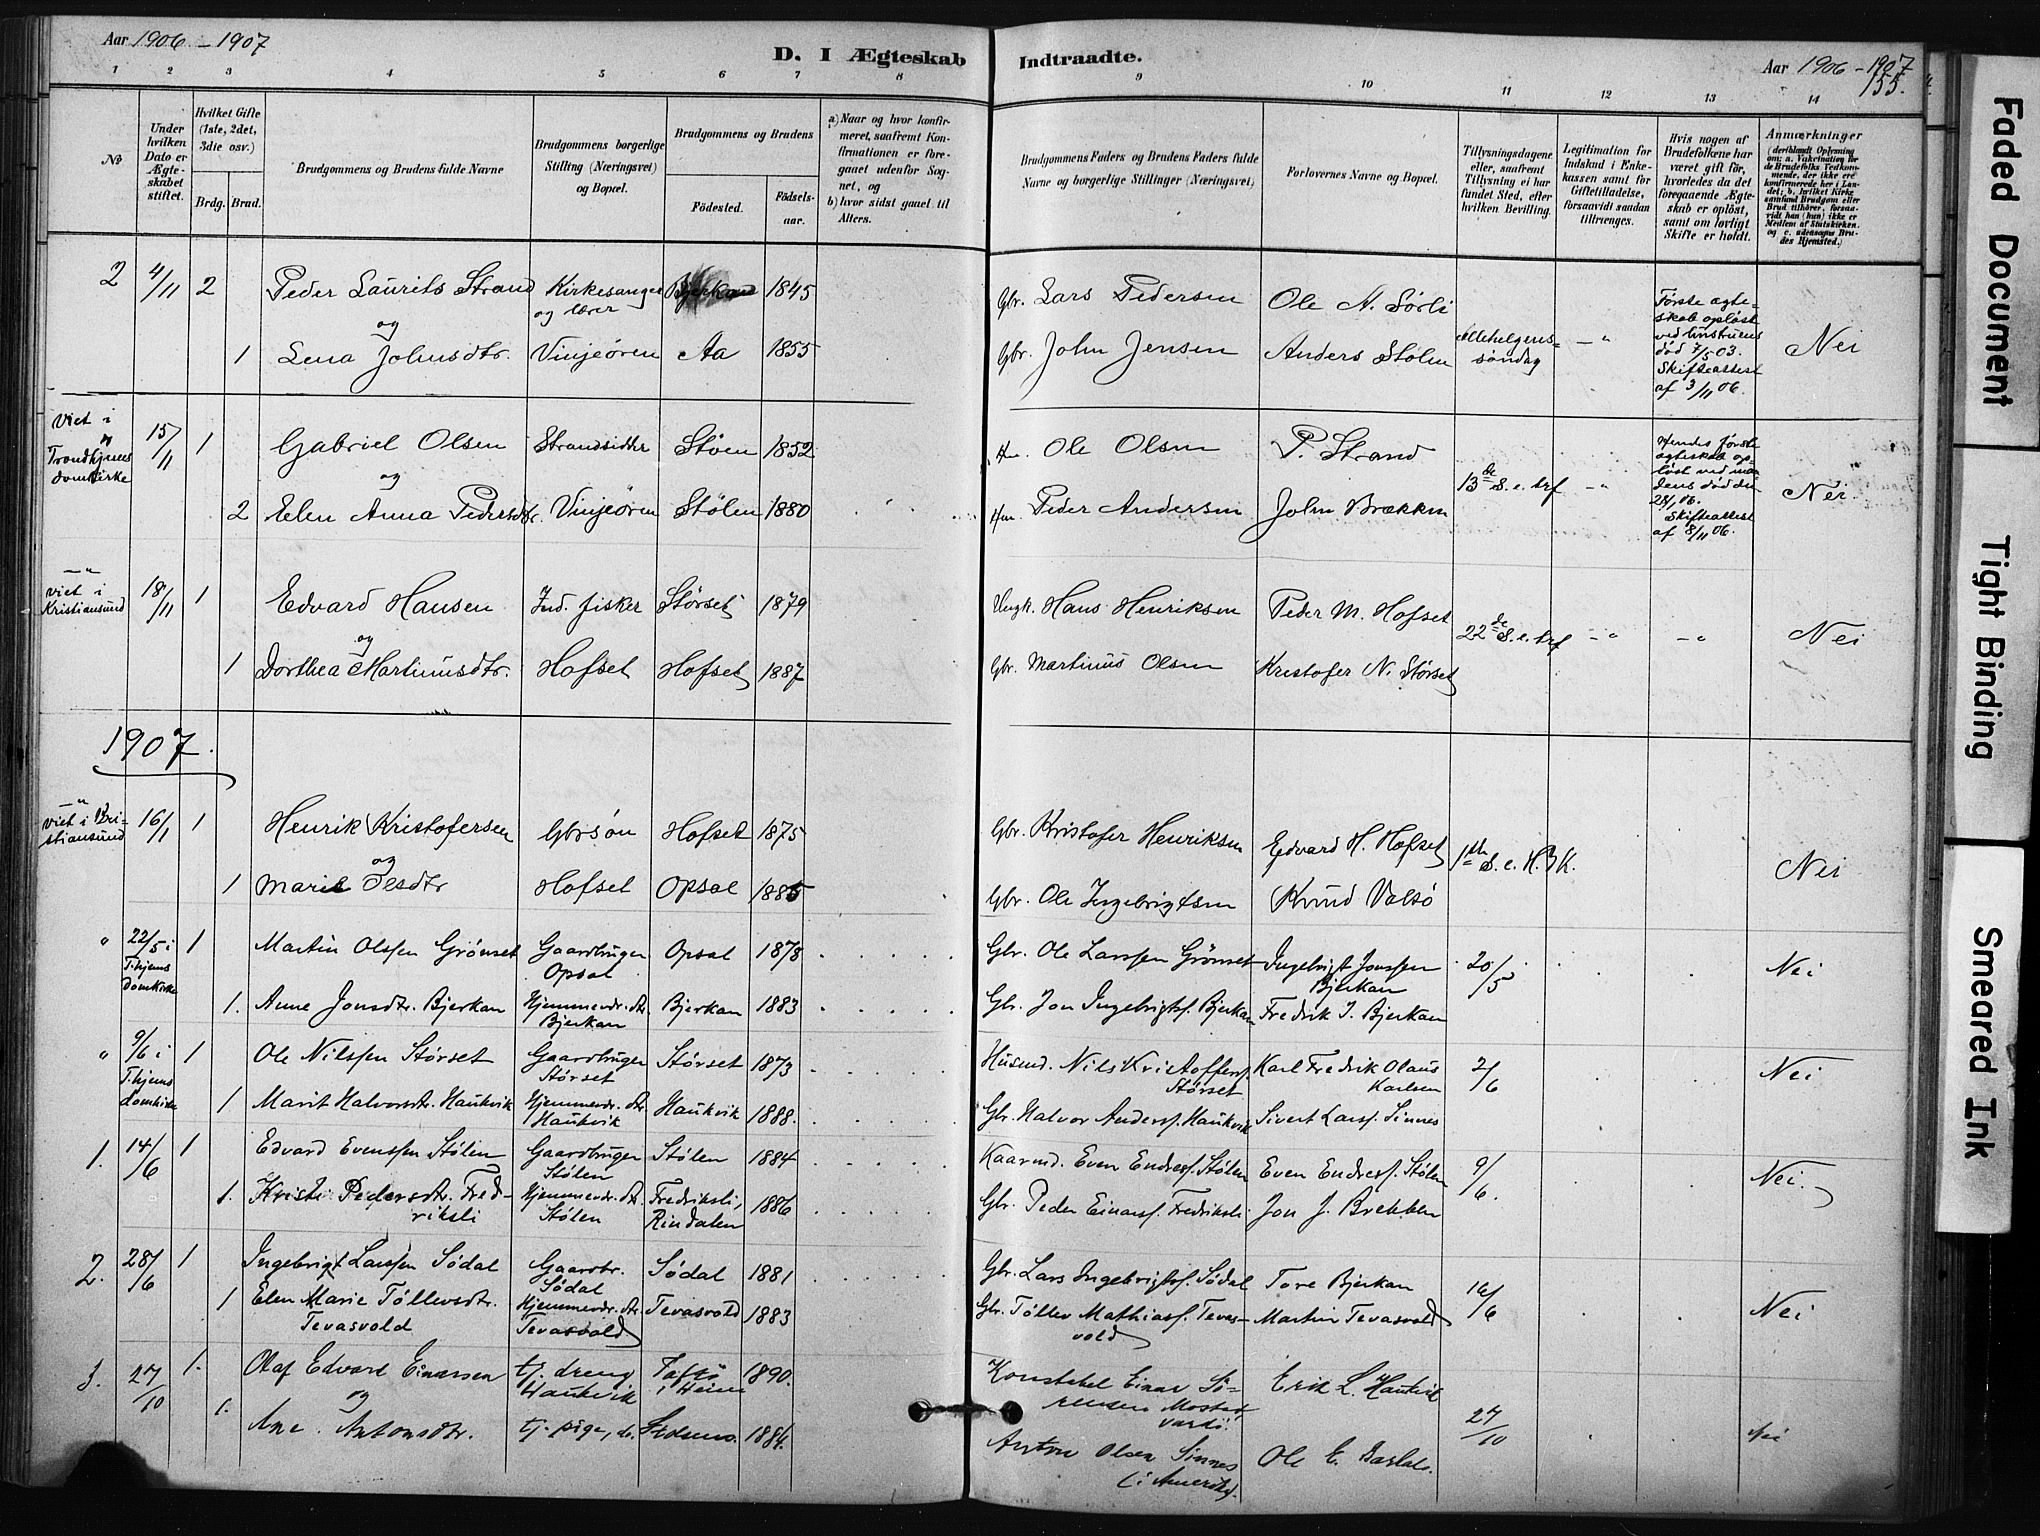 Aar 1906 - 1907
D. I Ægteskab Indtraadte.
Aar 1906 - 1907
155.
1 2 3 4 5 6 7 8 9 10 11 12 13 14
No
Under hvilken Dato er Ægteskabet stiftet.
Hvilket Gifte (1ste, 2det, 3die osv.)
Brdg. Brud.
Brudgommens og Brudens fulde Navne
Brudgommens borgerlige Stilling (Næringsvei) og Bopæl.
Brudgommens og Brudens
Fødested.
Fødselsaar.
a) Naar og hvor konfirmeret, saafremt Konfirmationen er foregaaet udenfor Sognet, og
b) hvor sidst gaaet til Alters.
Brudgommens Faders og Brudens Faders fulde Navne og borgerlige Stillinger (Næringsvei)
Forlovernes Navne og Bopæl.
Tillysningsdagene eller, saafremt Tillysning ei har fundet Sted, efter hvilken Bevilling.
Legitimation for Indskud i Enkekassen samt for Giftetilladelse, forsaavidt saadan tiltrænges.
Hvis nogen af Brudefolkene har været gift før, hvorledes da det foregaaende Ægteskab er opløst, samt om lovligt Skifte er holdt.
Anmærkninger (deriblandt Oplysning om: a. Vakcination for de Brudefolks Vedkommende, der ikke ere konfirmerede her i Landet; b. hvilket Kirkesamfund Brudgom eller Brud tilhører, forsaavidt han (hun) ikke er Medlem af Statskirken, og c. udensogns Brudes Hjemsted.)
2 4/11 2 Peder Laurits Strand Kirkesanger og lærer 1845 Gbr. Lars Pedersen Ole A. Sørli
og
1 Lena Johnsdtr. Vinjeøren Aa 1855 Gbr. John Jensen Anders Stølen Allehelgenssøndag -"- Nei
Første ægteskab opløst ved hustruens død 7/5 03. Skifteattest af 3/11 06.
Viet i Trondhjems domkirke 15/11 1 Gabriel Olsen Strandsidder Støen 1852 Hm. Ole Olsen P. Strand
og
2 Elen Anna Pedersdtr. Vinjeøren Stølen 1880 Hm. Peder Andersen John Brækken 13de S. e. trf -"- Nei
Hendes første ægteskab opløst ved mandens død den 28/1 06. Skifteattest af 8/11 06.
-"- viet i Kristiansund 18/11 1 Edvard Hansen Ind. fisker Størset 1879 Ungk. Hans Henriksen Peder M. Hofset 22de S. e. trf -"- -"- Nei
og
1 Dorthea Martinusdtr. Hofset Hofset 1887 Gbr. Martinus Olsen Kristofer N. Størset
1907.
-"- viet i Kristiansund 16/1 1 Henrik Kristofersen Gbrsøn Hofset 1875 Gbr. Kristofer Henriksen Edvard H. Hofset 1ste S. e. H. 3 K. Nei
og
1 Marie Olsdtr Hofset Opsal 1885 Gbr. Ole Ingebrigtsen Knud Valsø
" 22/5 i T.hjems Domkirke 1 Martin Olssen Grønset Gaardbruger Opsal Opsal 1878 Gbr. Ole Larssen Grønset Ingebrigt Jonssen Bjerkan 20/5 Nei
1. Anne Jonsdtr. Bjerkan Hjemmevdr. dtr. Bjerkan Bjerkan 1883 Gbr. Jon Ingebrigtsf. Bjerkan Fredrik I. Bjerkan
" 9/6 i T.hjems domkirke 1 Ole Nilssen Størset Gaardbruger Størset Størset 1873 Husmd. Nils Kristoffersf. Størset Karl Fredrik Olaus Karlsen 2/6 Nei
1 Marit Halvorsdtr. Haukvik Hjemmevdr. dtr. Haukvik Haukvik 1888. Gbr. Halvor Andersf. Haukvik Sivert Larsf. Sinnes
1. 14/6 1 Edvard Evenssen Stølen Gaardbruger Stølen Stølen 1884 Kaarmd. Even Endresf. Stølen Even Endresf. Stølen 9/6. Nei.
1. Kristi Pedersdtr. Fredriksli Hjemmevdr. dtr. Stølen Fredriksli, Rindalen 1886 Gbr. Peder Einarsf. Fredriksli Jon J. Brekken
2. 28/6 1 Ingebrigt Larssen Sødal Gaardbr. Sødal Sødal 1881 Gbr. Lars Ingebrigtsf. Sødal Tore Bjerkan 16/6 Nei
1 Elen Marie Tøllevsdtr. Tevasvold Hjemmevdr. dtr. Tevasvold Tevasvold 1883 Gbr. Tøllev Mathiasf. Tevasvold Martin Tevasvold
3. 27/10 1. Olaf Edvard Einarsen tj. dreng Haukvik Taftø i Heim 1890. Konstabel Einar Sørensen Mosted Vardø. Erik L. Haukvik 27/10 Nei
og
1. Ane Antonsdtr. tj. pige, do. 1884. Anton Olsen Sinnes (i Amerika). Ole E.
Faded Document
Tight Binding
Smeared Ink